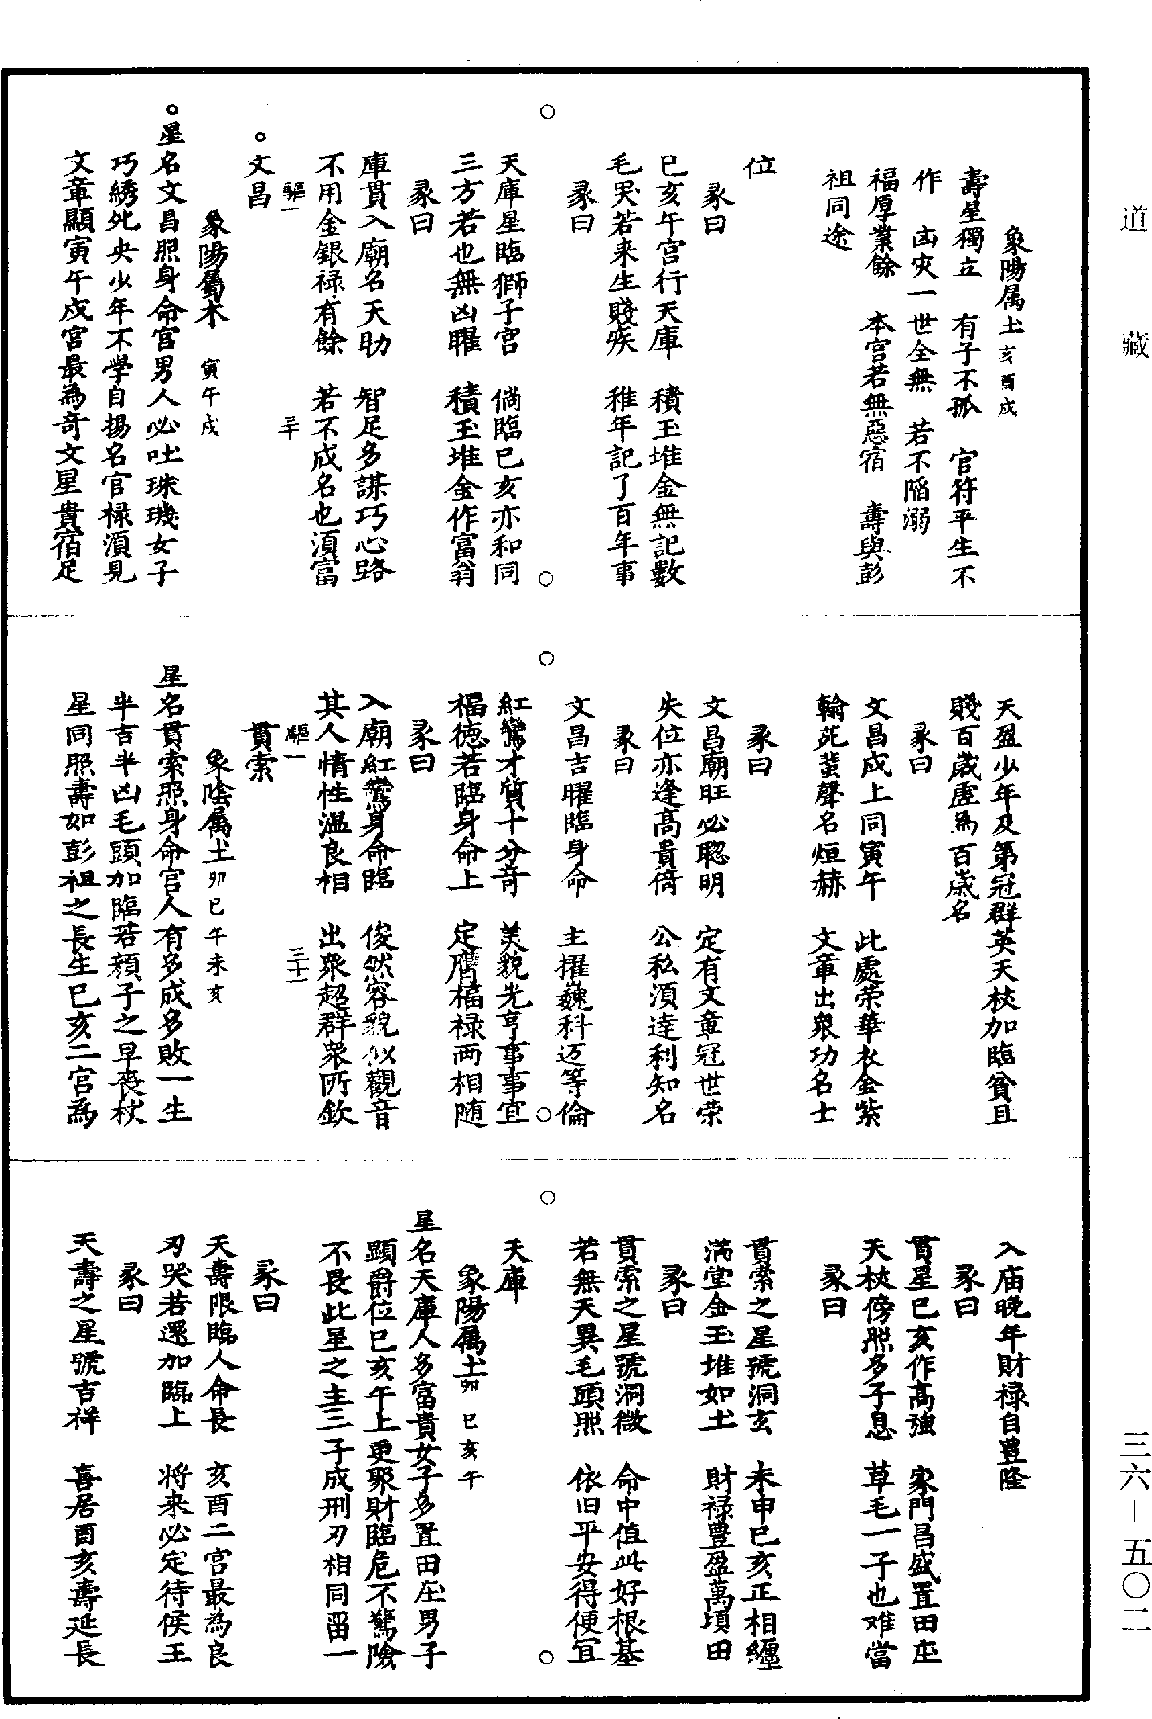 道藏
三六—五〇二
象陽属土 亥酉戌
壽星獨立 有子不孤 官符平生不
作 凶灾一世全無 若不陷溺
福厚業餘 本宮若無惡宿 壽與彭
祖同途
位
彖曰
巳亥午宮行天庫 積玉堆金無記數
毛哭若来生賤疾 稚年記了百年事
彖曰
天庫星臨獅子宮 倘臨巳亥亦和同
三方若也無凶曜 積玉堆金作富翁
彖曰
庫貫入廟名天助 智足多謀巧心路
不用金銀禄有餘 若不成名也湏富
驅一 三十
○文昌
象陽屬木 寅午戌
○星名文昌照身命宮男人必吐珠璣女子
巧綉死央少年不學自揚名官禄湏見
文章顯寅午戌宮最為奇文星貴宿足
天盈少年及第冠群英天杖加臨貧且
賤百歲虛為百歲名
彖曰
文昌戌上同寅午 此處荣華衣金紫
翰死蜚聲名烜赫 文章出衆功名士
彖曰
文昌廟旺必聦明 定有文章冠世荣
失位亦逢高貴倚 公私湏達利知名
彖曰
文昌吉曜臨身命 主擢巍科迈等倫
紅鸞才質十分竒 美貌先亨事事宜
福德若臨身命上 定膺福禄两相随
彖曰
入廟紅鸞身命臨 俊然容貌似觀音
其人情性温良相 出衆超群衆所欽
驅一 三十一
貫索
象陰属土 卯巳午未亥
星名貫索照身命宮人有多成多敗一生
半吉半凶毛頭加臨若顏子之早喪杖
星同照壽如彭祖之長生巳亥二宮為
入庙晚年財禄自豊隆
彖曰
貫星巳亥作高強 家門昌盛置田庄
天杖傍照多子息 草毛一子也难當
彖曰
貫索之星號洞玄 未申巳亥正相纏
滿堂金玉堆如土 財禄豊盈萬頃田
彖曰
貫索之星號洞微 命中值此好根基
若無天異毛頭照 依旧平安得便宜
天庫
象陽属土 卯巳亥午
星名天庫人多富貴女子多置田庄男子
顕爵位巳亥午上更聚財臨危不驚險
不畏此星之主三子成刑刃相同留一
彖曰
天壽限臨人命長 亥酉二宮最為良
刃哭若還加臨上 将来必定待侯王
彖曰
天壽之星號吉祥 喜居酉亥壽延長